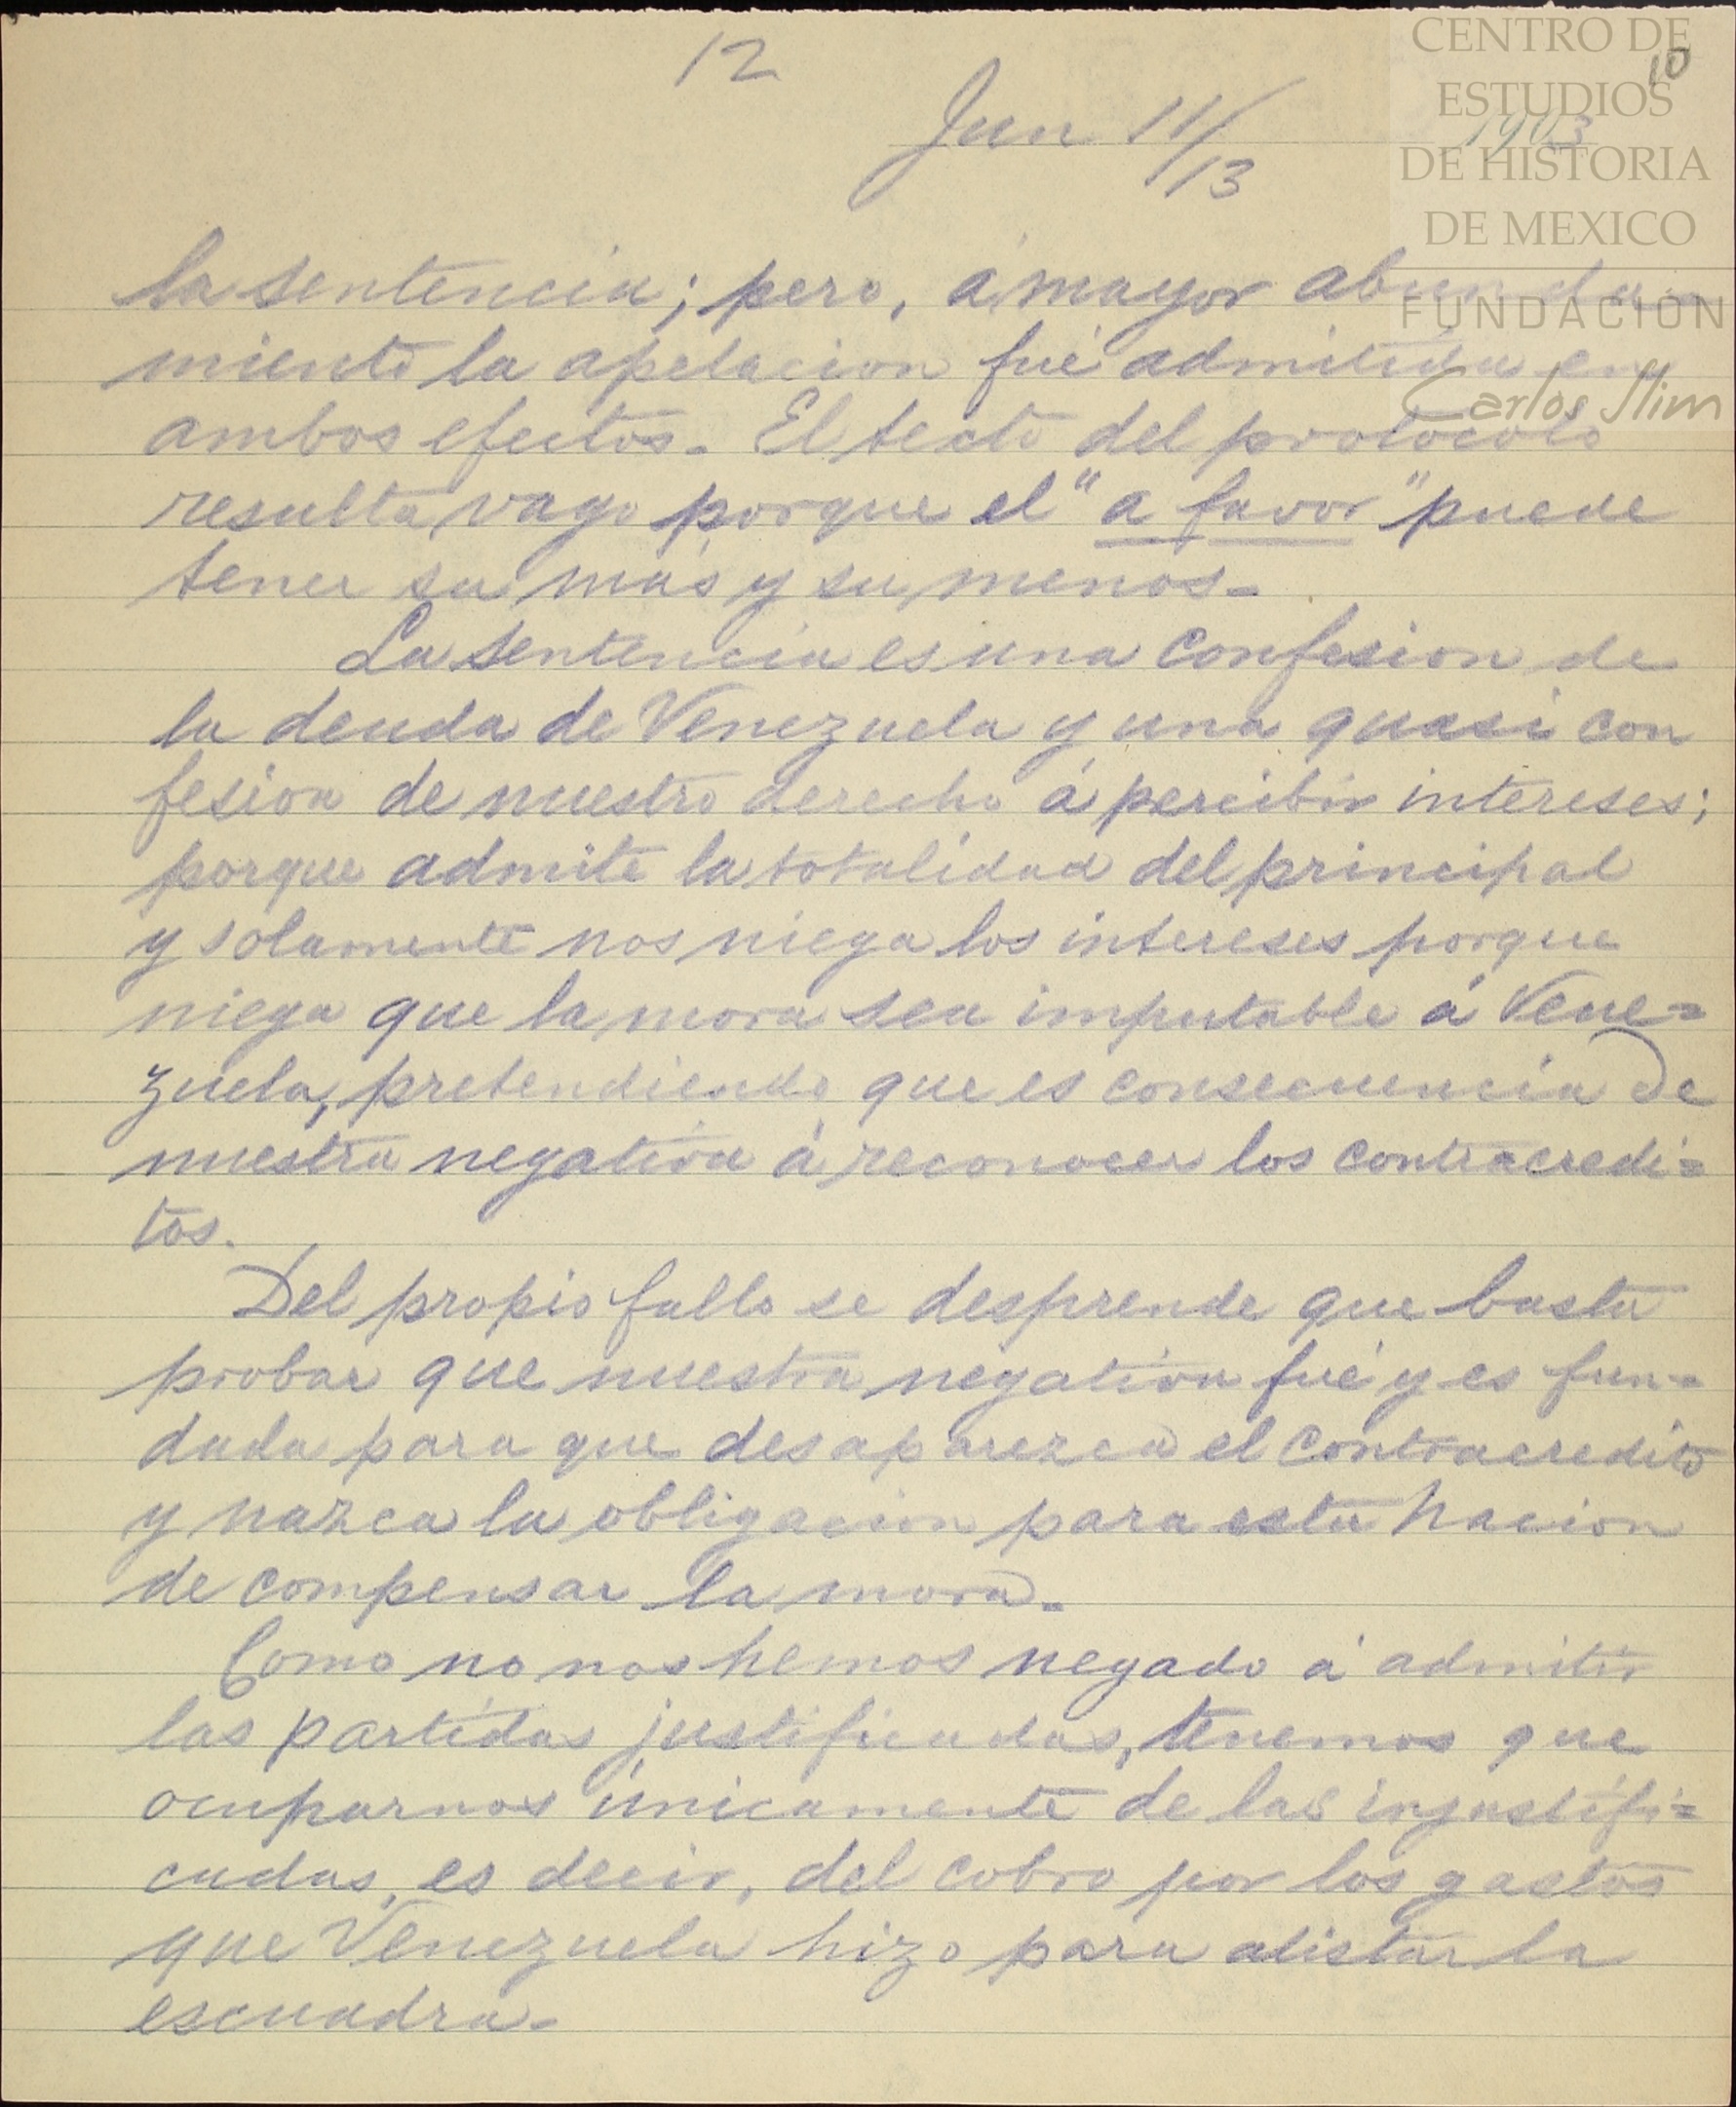 12
10
Jun 11/13
1903
CENTRO DE
ESTUDIOS
DE HISTORIA
DE MEXICO
FUNDACIÓN
Carlos Slim
la sentencia; pero, á mayor abunda-
miento la apelacion fué admitida en
ambos efectos. El texto del protocolo
resulta vago porque el "a favor" puede
tener su más y su menos.
La sentencia es una confesion de
la deuda de Venezuela y una quasi con
fesion de nuestro derecho á percibir intereses;
porque admite la totalidad del principal
y solamente nos niega los intereses porque
niega que la mora sea imputable á Vene=
zuela, pretendiendo que es consecuencia de
nuestra negativa á reconocer los contracredi=
tos.
Del propio fallo se desprende que basta
probar que nuestra negativa fué y es fun=
dada para que desaparezca el contracredito
y nazca la obligacion para esta Nacion
de compensar la mora.
Como no nos hemos negado á admitir
las partidas justificadas, tenemos que
ocuparnos únicamente de las injustifi=
cadas, es decir, del cobro por los gastos
que Venezuela hizo para alistar la
escuadra.